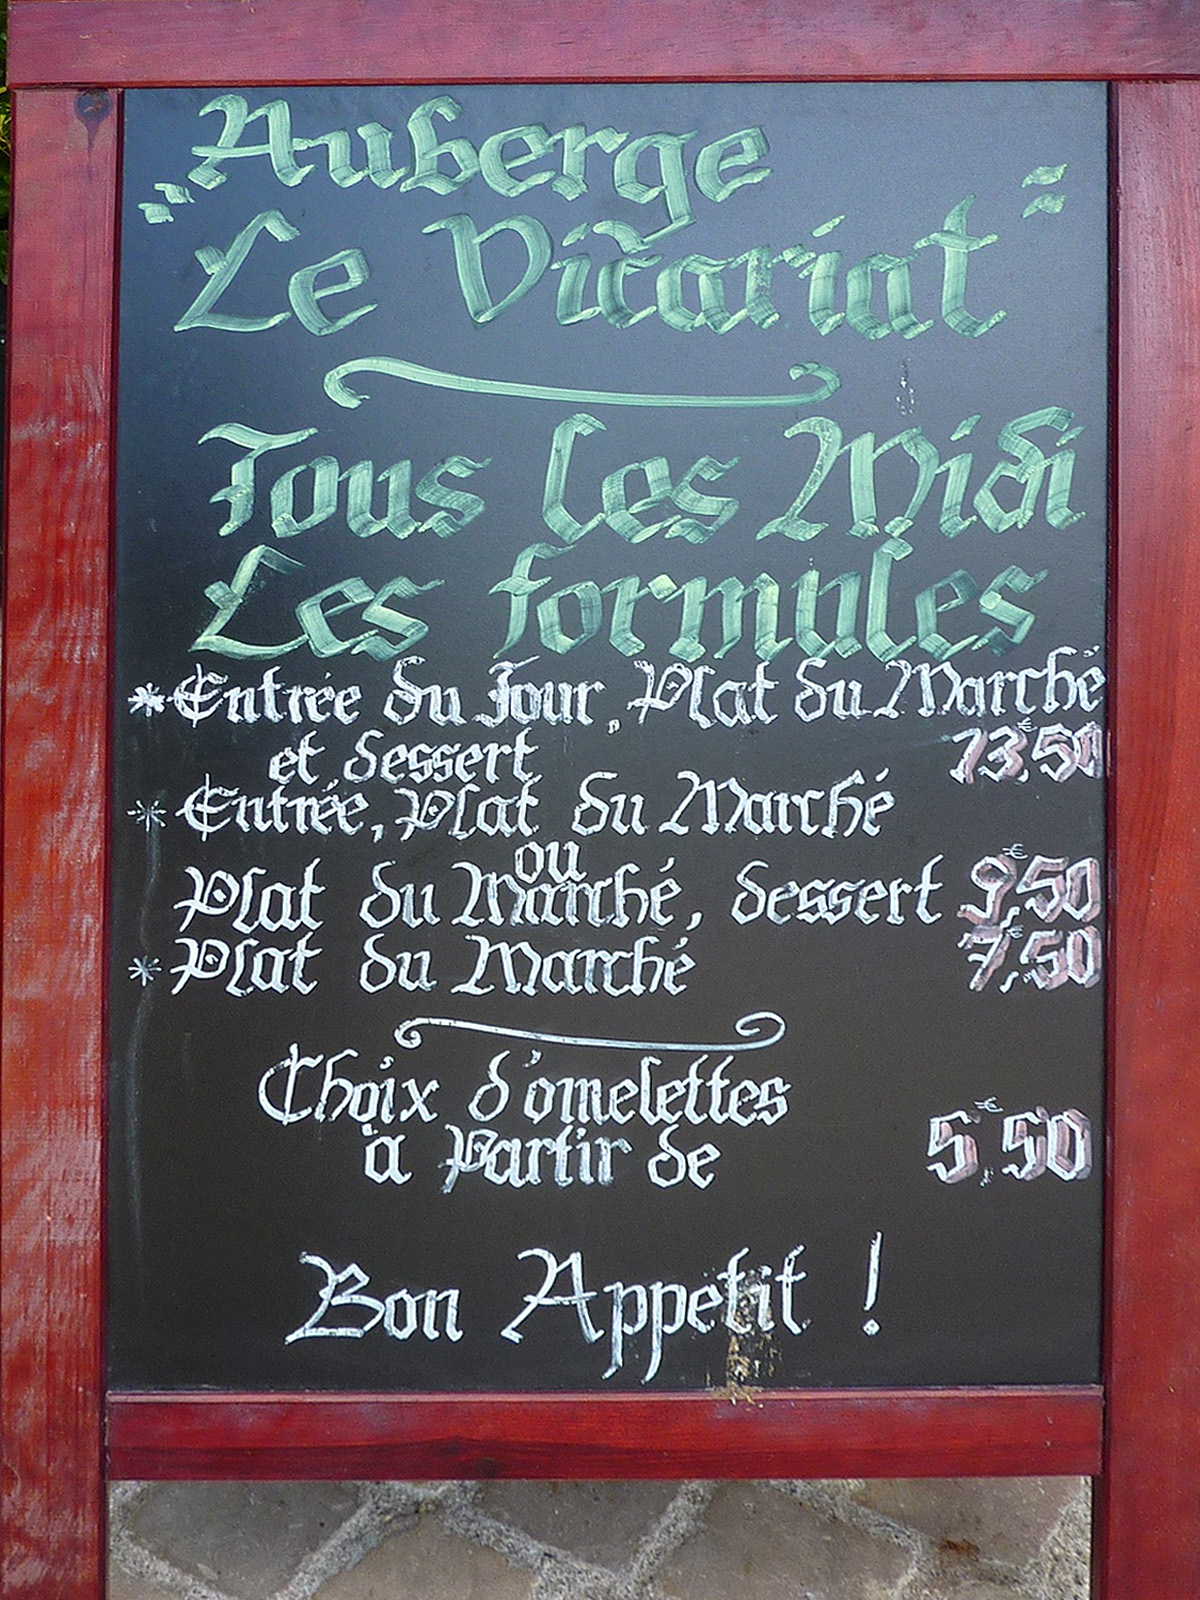 Auberge
" Le Vicariat "
Tous les Midi
Les formules
* Entrée du Jour, Plat du Marché
et dessert 13,50 €
* Entrée, Plat du Marché
ou
Plat du Marché, dessert 9,50 €
* Plat du Marché 7,50 €
Choix d'omelettes
à Partir de 5,50 €
Bon Appetit !